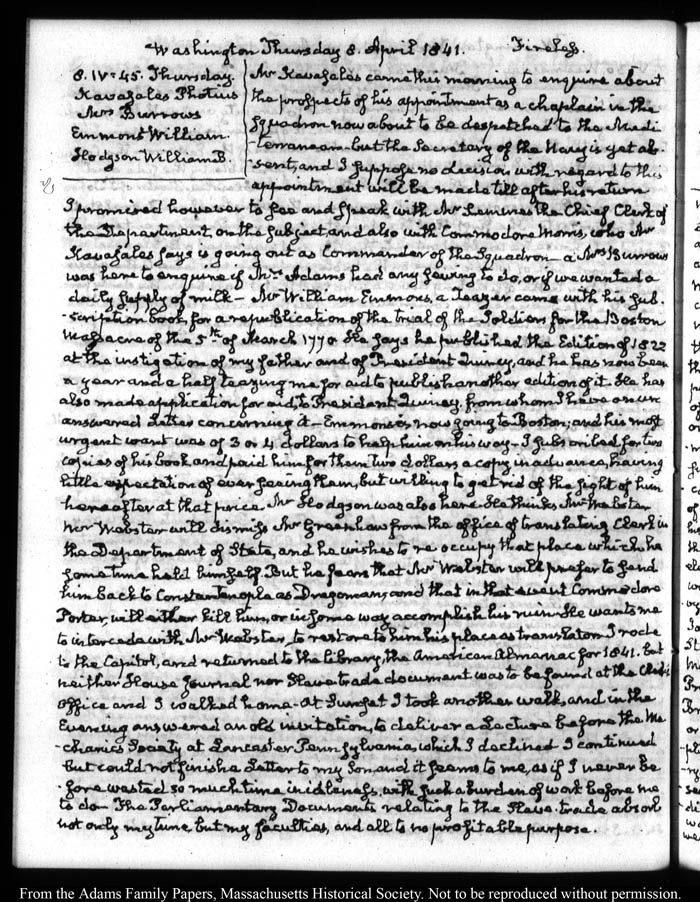 Washington Thursday 8. April 1841. Fireless.
8. IV:45. Thursday.
Kavasales Photius
Mrs Burrows
Emmons William.
Hodgson William B.
Mr Kavasales came this morning to enquire about
the prospects of his appointment as a chaplain in the
Squadron now about to be despatched to the Medi
-terranean but the Secretary of the Navy is yet ab-
-sent, and I suppose no decision with regard to this
appointment will be made till after his return
I promised however to see and speak with Mr the Chief Clerk of
the Department, on the subject, and also with Commodore Morris, who Mr
Kavasales says is going out as Commander of the Squadron – a Mrs Burrows
was here to enquire if Mrs Adams had any sewing to do, or if we wanted a
daily supply of milk – Mr William Emmons, a Teazer came with his sub
-scription book, for a republication of the trial of the Soldiers for the Boston
Massacre of the 5th of March 1770 He says he published the Edition of 1822
at the instigation of my father and of President Quincy, and he has now been
a year and a half teazing me for aid to publish another edition of it. He has
also made application for aid, to President Quincy, from whom I have an un
answered Letter concerning it – Emmons is now going to Boston; and his most
urgent want was of 3 or 4 dollars to help him on his way – I subscribed for two
copies of his book and paid him for them two dollars a copy, in advance, having
little expectation of ever seeing them, but willing to get rid of the sight of him
hereafter at that price. Mr Hodgson was also here. He thinks Mr Webster
Mr Webster will dismiss Mr Greenhow from the office of translating Clerk in
the Department of State, and he wishes to re occupy that place which he
sometime held himself. But he fears that Mr Webster will prefer to send
him back to Constantinople as Dragoman, and that in that event Commodore
Porter, will either kill him, or in some way accomplish his ruin. He wants me
to intercede with Mr Webster, to restore to him his place as translator. I rode
to the Capitol, and returned to the library, the American Almanac for 1841. but
neither House Journal nor Slave trade document was to be found at the Clerk's
office and I walked home – At Sunset I took another walk, and in the
Evening answered an old invitation, to deliver a Lecture before the Me
-chanics Society at Lancaster Pennsylvania, which I declined – I continued
but could not finish a Letter to my Son, and it seems to me, as if I never be
-fore wasted so much time in idleness, with such a burden of work before me
to do – The Parliamentary Documents relating to the Slave-trade absorb
not only my time, but my faculties, and all to no profitable purpose.
From the Adams Family Papers, Massachusetts Historical Society. Not to be reproduced without permission.